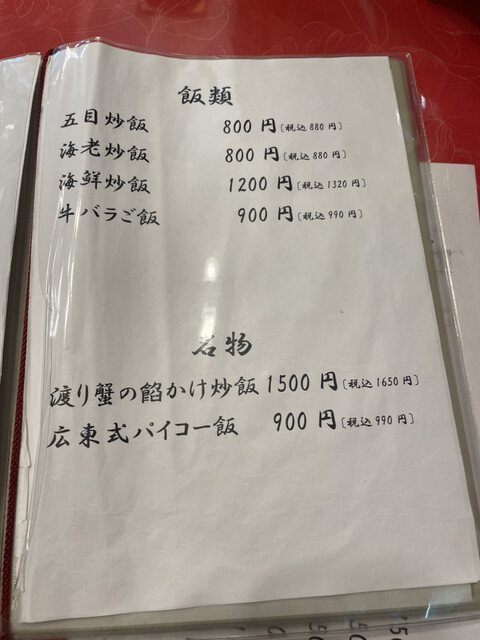 飯類
五目炒飯 800円〔税込880円〕
海老炒飯 800円〔税込880円〕
海鮮炒飯 1200円〔税込1320円〕
牛バラご飯 900円〔税込990円〕
名物
渡り蟹の餡かけ炒飯 1500円〔税込1650円〕
広東式パイコー飯 900円〔税込990円〕